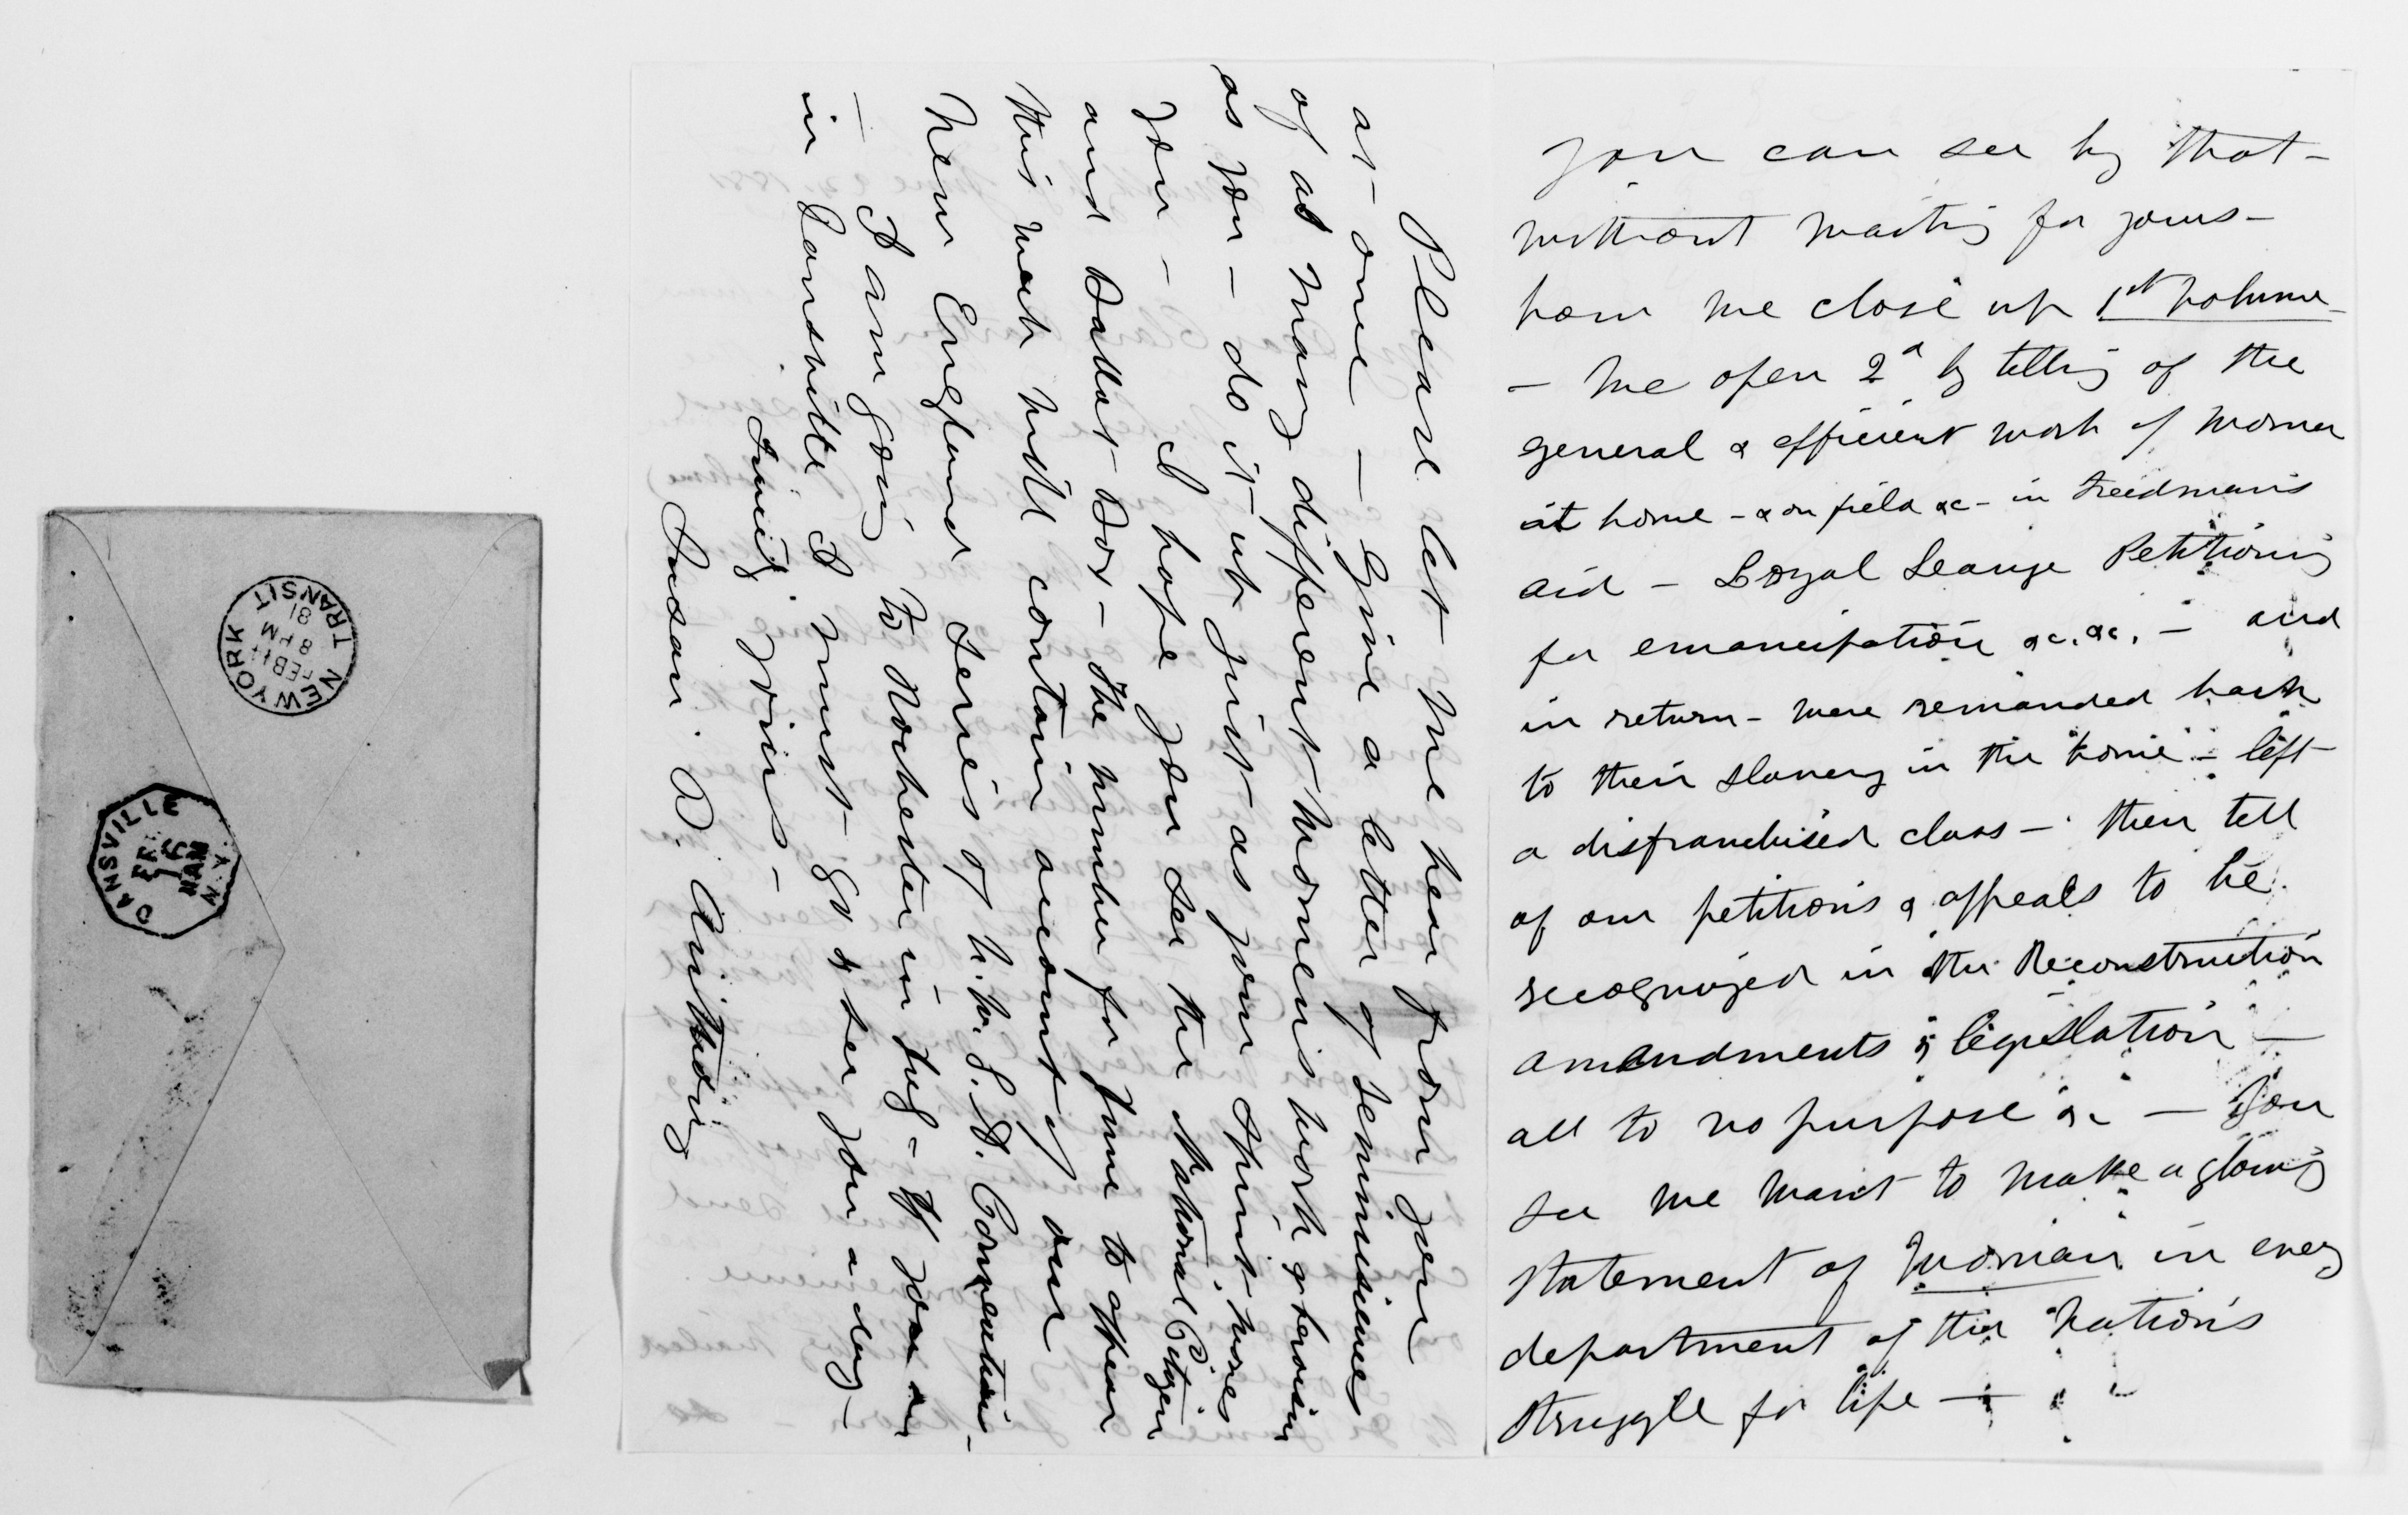 you can see by that –
without waiting for yours –
how we close up 1st volume –
– We open 2d by telling of the
general & efficient work of women
at home – & on field &c – in Freedman's
aid – Loyal League Petitioning
for emancipation &c. &c. – and
in return – were remanded back
to their slavery in the home – left
a disfranchised class – then tell
of our petitions & appeals to be
recognized in the Reconstruction
amendments & legislation –
all to no purpose &c – You
see we want to make a glowing
statement of Woman in every
department of the Nation's
struggle for life –
Please let me hear from you
at once – Give a letter of reminiscences
of as many different women's work & heroism
as you – do it up just as your spirit moves
you – I hope you see the National Citizen
and Ballot Box – The number for June to appear
this week will contain account of our
New England series of N. W. S. A. Conventions –
– I am going to Rochester in July – If you are
in Dansville I must go & see you a day –
Sincerely yours –
Susan. B. Anthony
NEW YORK
FEB 11
8 PM
81
TRANSIT
DANSVILLE
N.Y.